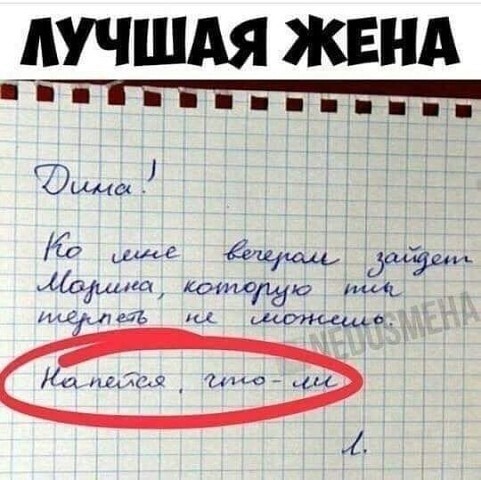 ЛУЧШАЯ ЖЕНА
Дима!
Ко мне вечером зайдет
Марина, которую ты
терпеть не можешь.
Напейся, что-ли
Л.
NEDOSMEHA